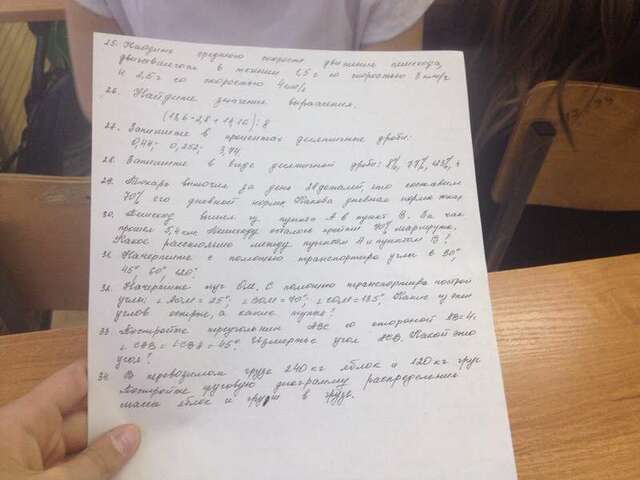 25. Найдите среднюю скорость движения пешехода,
двигавшегося в течении 1,5 г со скоростью 8 км/г
и 2,5 г со скоростью 4 км/г
26. Найдите значение выражения.
27. Запишите в процентах десятичные дроби:
0,44; 0,252; 3,74
28. Запишите в виде десятичной дроби: 8%, 77%,
29. Токарь выточил за день деталей, что составляет
70% его дневной нормы. Какова дневная норма
30. Пешеход вышел из пункта А в пункт В. За час
прошел 5,4 км. Пешеходу осталось пройти 70% маршрута.
Какое расстояние между пунктом А и пунктом В?
31. Начертите с помощью транспортира углы в 30°,
45°, 60°, 120°
32. Начертите луч ОМ. С помощью транспортира построй
углы: ∠АОМ = 25°, ∠ВОМ = 70°, ∠СОМ = 135°. Какие из этих
углов острые, а какие тупые?
33. Постройте треугольник АВС со стороной АВ = 4.
= 45°. Измерьте угол АСВ. Какой это
угол?
34. В перевозимом грузе 240 кг яблок и 120 кг груш
Постройте круговую диаграмму распределения
массы яблок и груш в грузе.